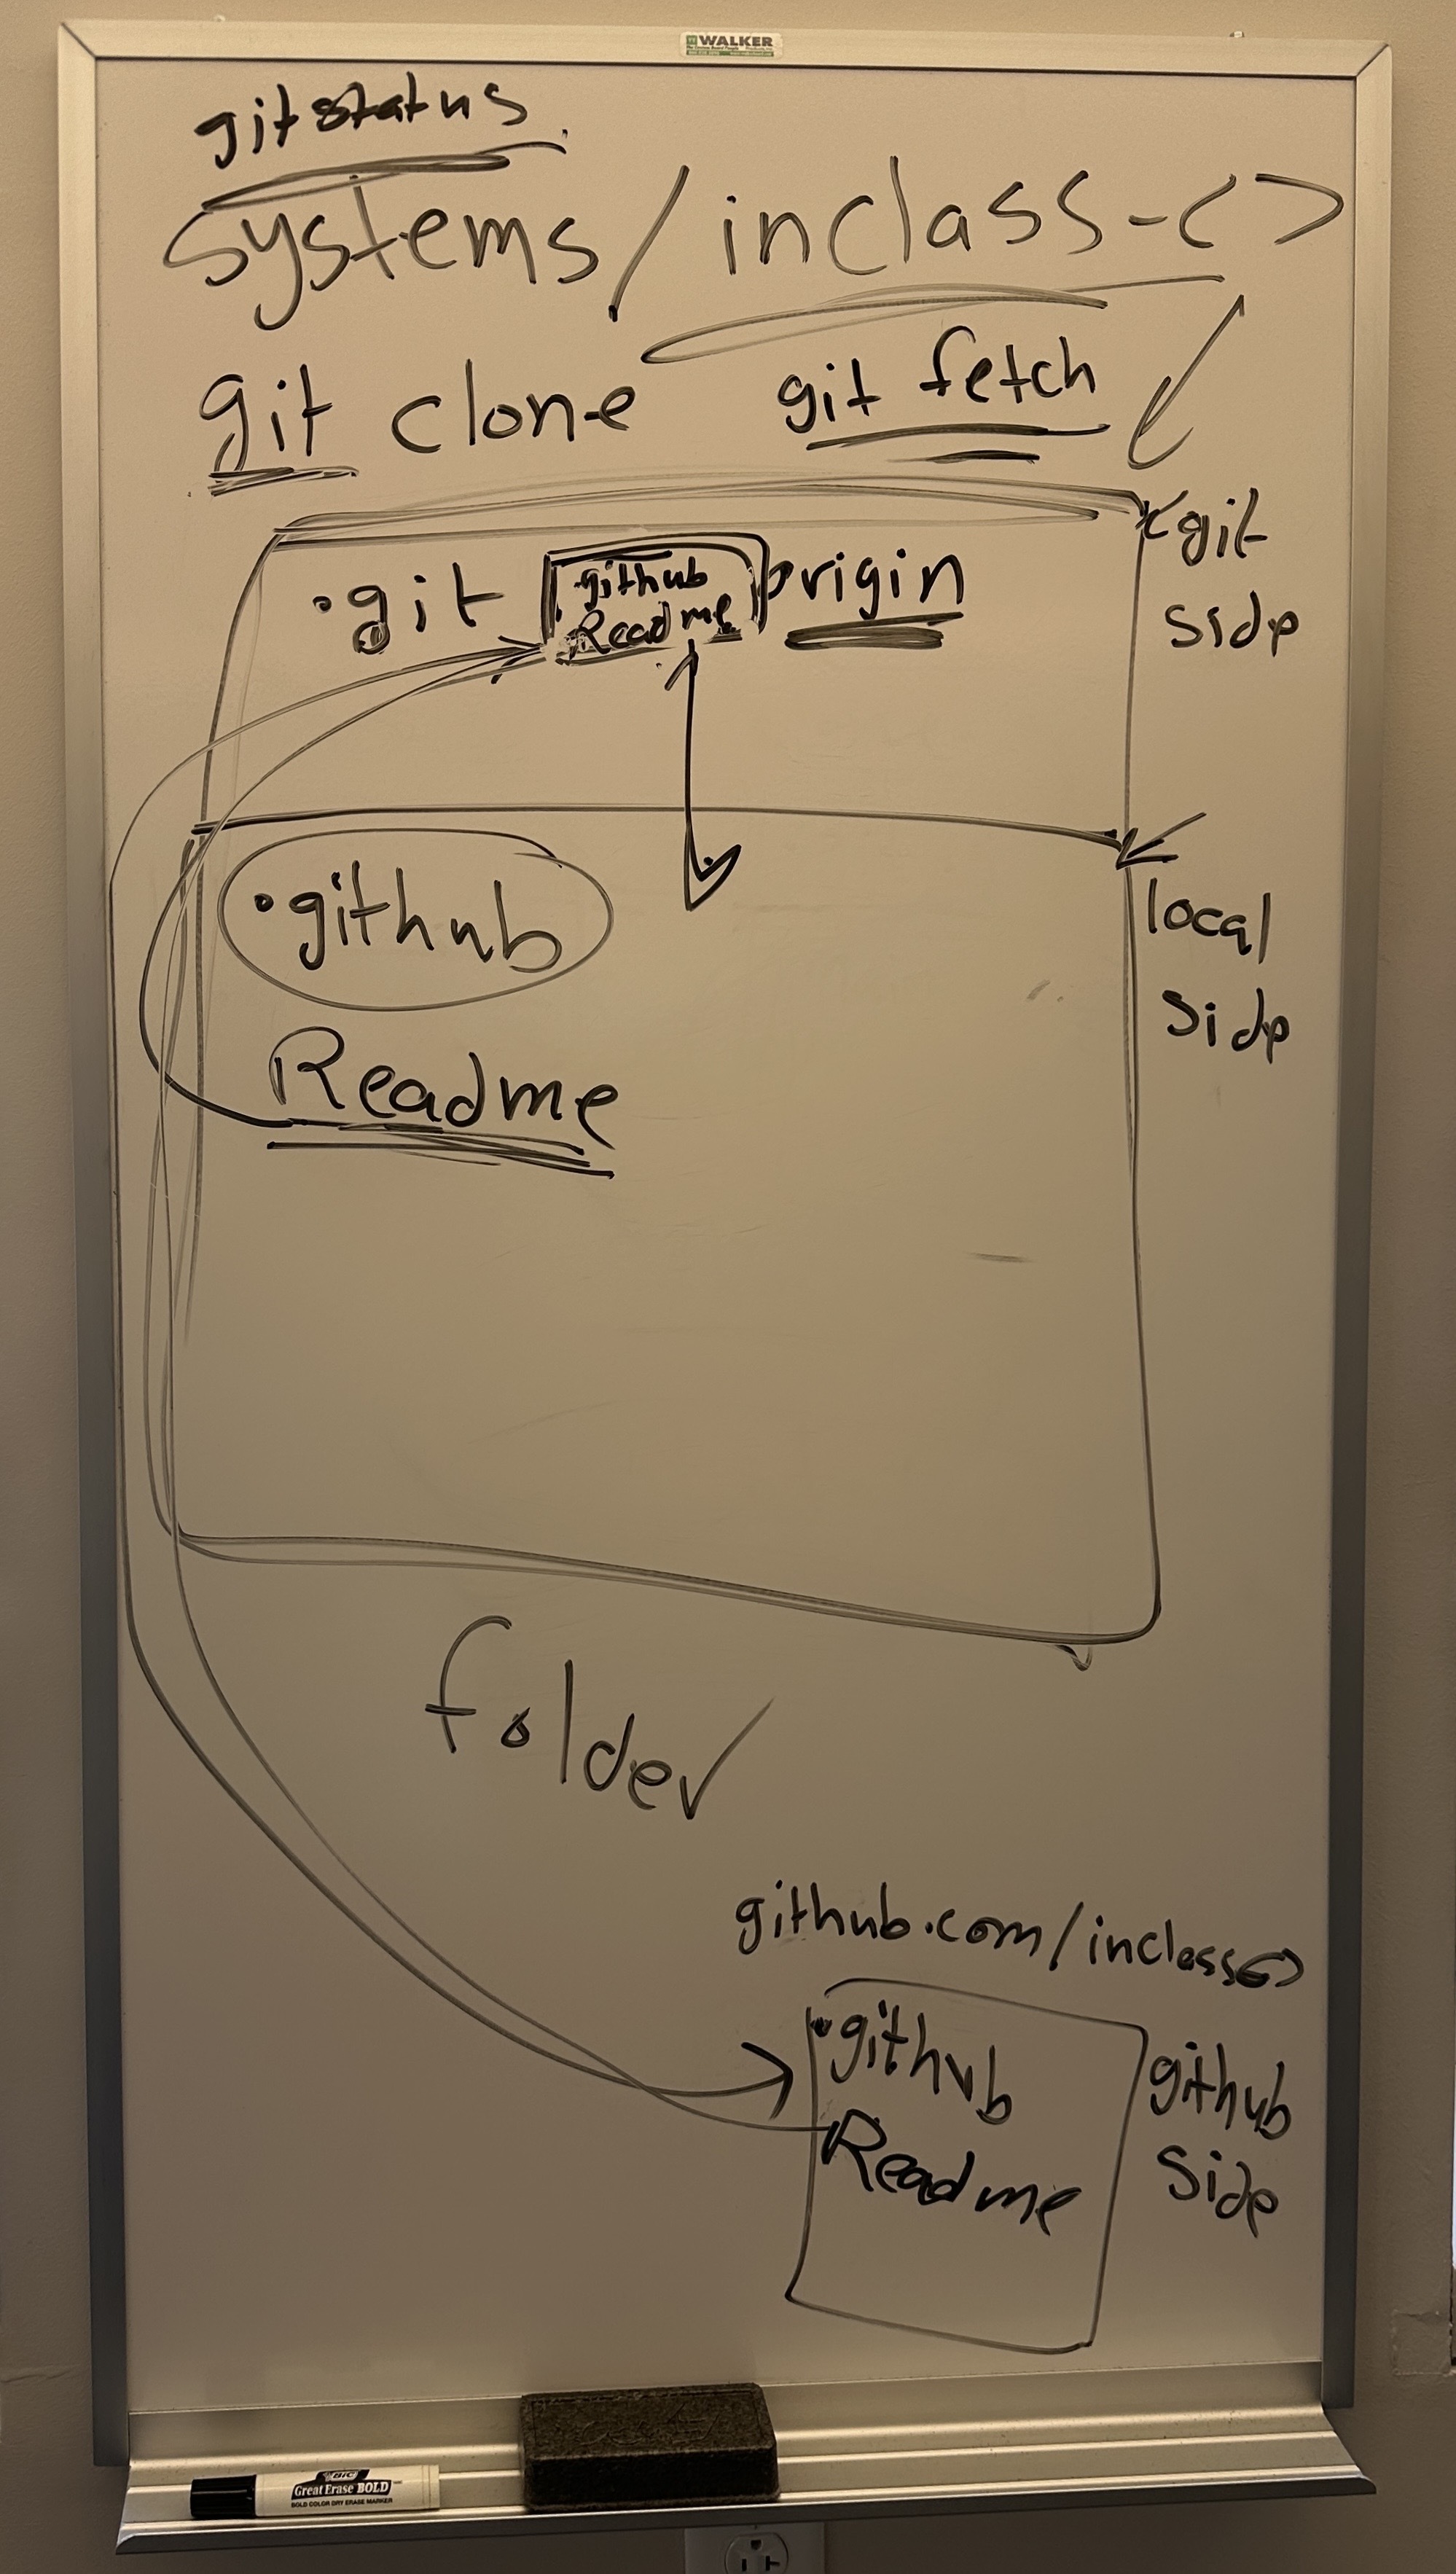 WALKER
git status
systems/inclass-<>
git clone
git fetch
.git
.github
Readme
origin
git
side
.github
Readme
local
side
folder
github.com/inclass<>
.github
Readme
github
side
BIC
Great Erase BOLD
BOLD COLOR DRY ERASE MARKER